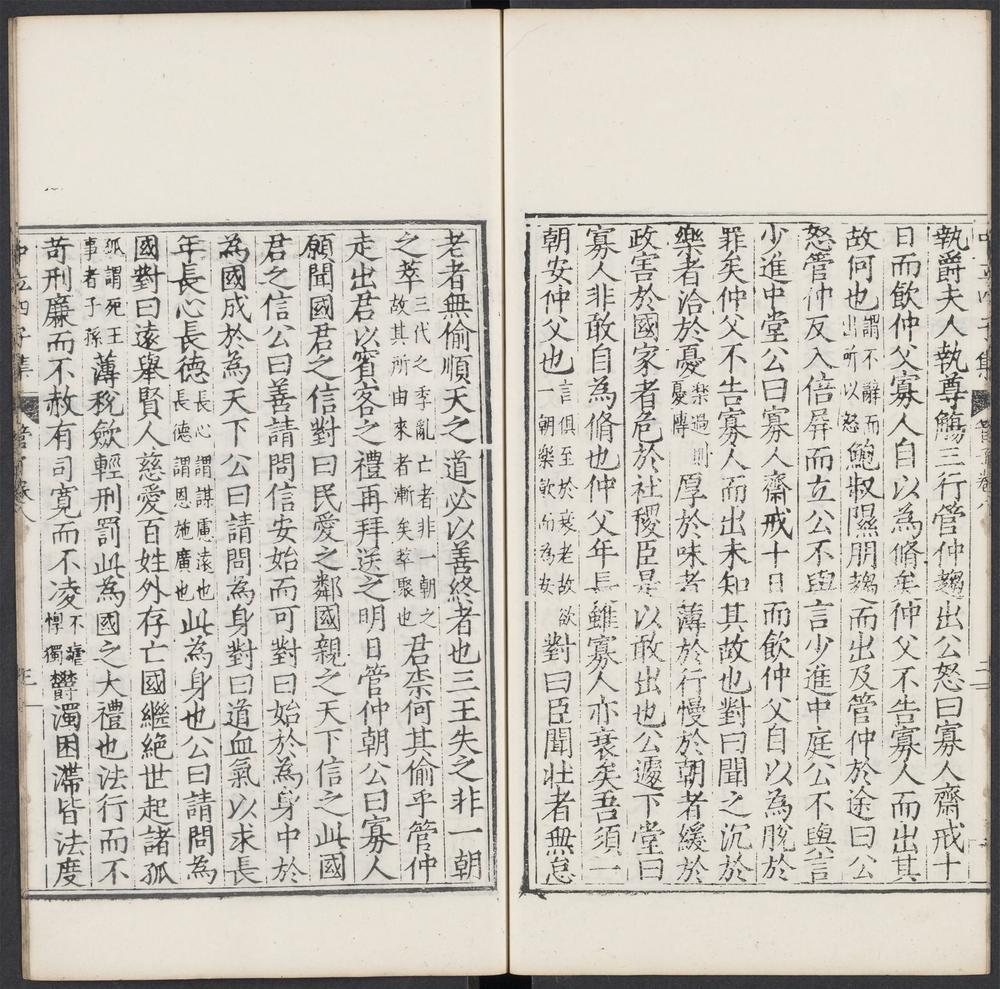 執爵夫人執尊觴三行管仲趨出公怒曰寡人齋戒十
日而飲仲父寡人自以為脩矣仲父不告寡人而出其
故何也謂不辭而出所以怒鮑叔隰朋趨而出及管仲於途曰公
怒管仲反入倍屏而立公不與言少進中庭公不與言
少進中堂公曰寡人齋戒十日而飲仲父自以為脫於
罪矣仲父不告寡人而出未知其故也對曰聞之沉於
樂者洽於憂樂過則憂傳厚於味者薄於行慢於朝者緩於
政害於國家者危於社稷臣是以敢出也公遽下堂曰
寡人非敢自為脩也仲父年長雖寡人亦衰矣吾須一
朝安仲父也言俱至於衰老故欲一朝樂飲而為安對曰臣聞壯者無怠
老者無偷順天之道必以善終者也三王失之非一朝
之萃三代之季亂亡者非一朝之故其所由來者漸矣萃聚也君柰何其偷乎管仲
走出君以賓客之禮再拜送之明日管仲朝公曰寡人
願聞國君之信對曰民愛之鄰國親之天下信之此國
君之信公曰善請問信安始而可對曰始於為身中於
為國成於為天下公曰請問為身對曰道血氣以求長
年長心長德長心謂謀慮遠也長德謂恩施廣也此為身也公曰請問為
國對曰遠舉賢人慈愛百姓外存亡國繼絕世起諸孤
孤謂死王事者子孫薄稅斂輕刑罰此為國之大禮也法行而不
苛刑廉而不赦有司寬而不凌不虐惸獨鬱濁困滯皆法度